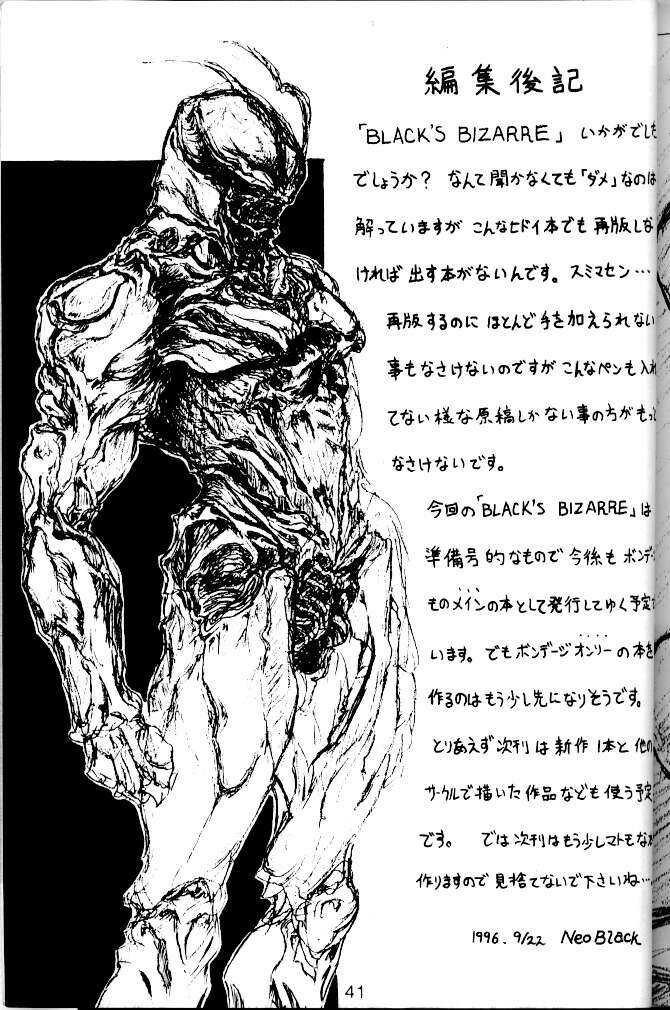 編集後記
「BLACK'S BIZARRE」 いかがでした
でしょうか? なんて聞かなくても「ダメ」なのは
解っていますが こんなヒドイ本でも 再版しな
ければ 出す本がないんです。スミマセン…
再版するのに ほとんど手を加えられない
事もなさけないのですが こんなペンも入れ
てない様な原稿しかない事の方がもっ
なさけないです。
今回の「BLACK'S BIZARRE」は
準備号的なもので 今後も ボンデー
ものメインの本として発行してゆく予定で
います。でもボンデージオンリーの本を
作るのはもう少し先になりそうです。
とりあえず次刊は新作1本と他の
サークルで描いた作品なども使う予定
です。 では次刊はもう少しマトモな
作りますので 見捨てないで下さいね…
1996. 9/22 Neo Black
41